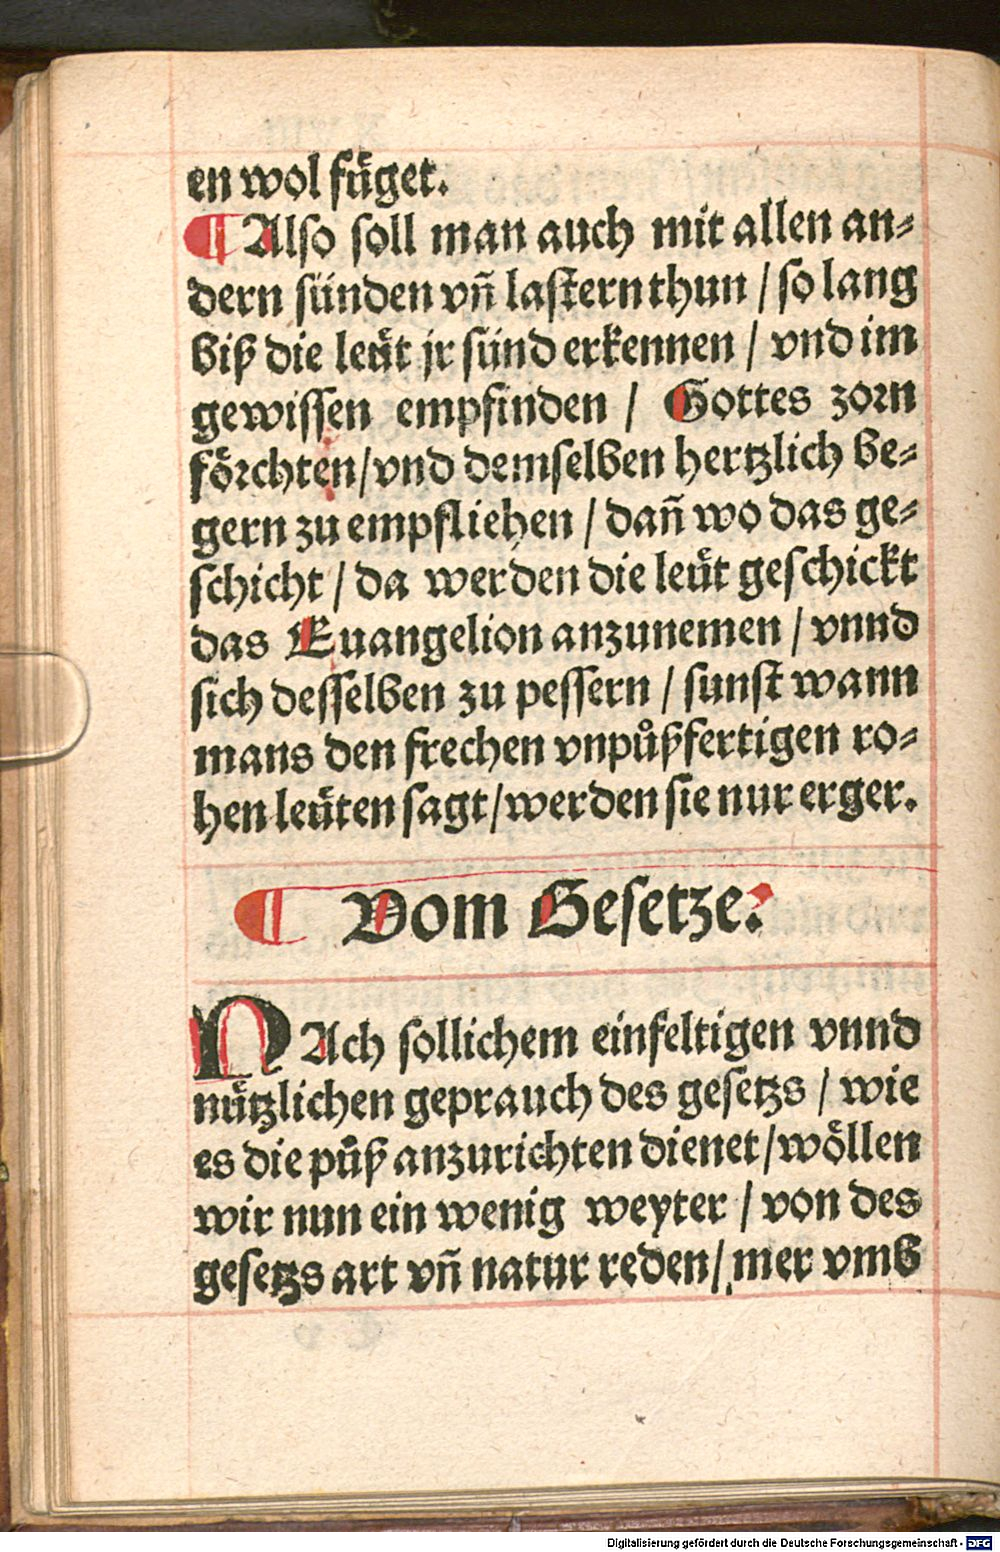 en wol fuͤget.
¶ Also soll man auch mit allen an⸗
dern sünden vñ lastern thun / so lang
biß die leuͤt jr sünd erkennen / vnd im
gewissen empfinden / Gottes zorn
foͤrchten / vnd demselben hertzlich be⸗
gern zu empfliehen / dañ wo das ge⸗
schicht / da werden die leuͤt geschickt
das Euangelion anzunemen / vnnd
sich desselben zu pessern / sunst wann
mans den frechen vnpůßfertigen ro⸗
hen leuͤten sagt / werden sie nur erger.
¶ Vom Gesetze.
NAch sollichem einfeltigen vnnd
nuͤtzlichen geprauch des gesetzs / wie
es die půß anzurichten dienet / woͤllen
wir nun ein wenig weyter / von des
gesetzs art vñ natur reden / mer vmb
Digitalisierung gefördert durch die Deutsche Forschungsgemeinschaft - DFG